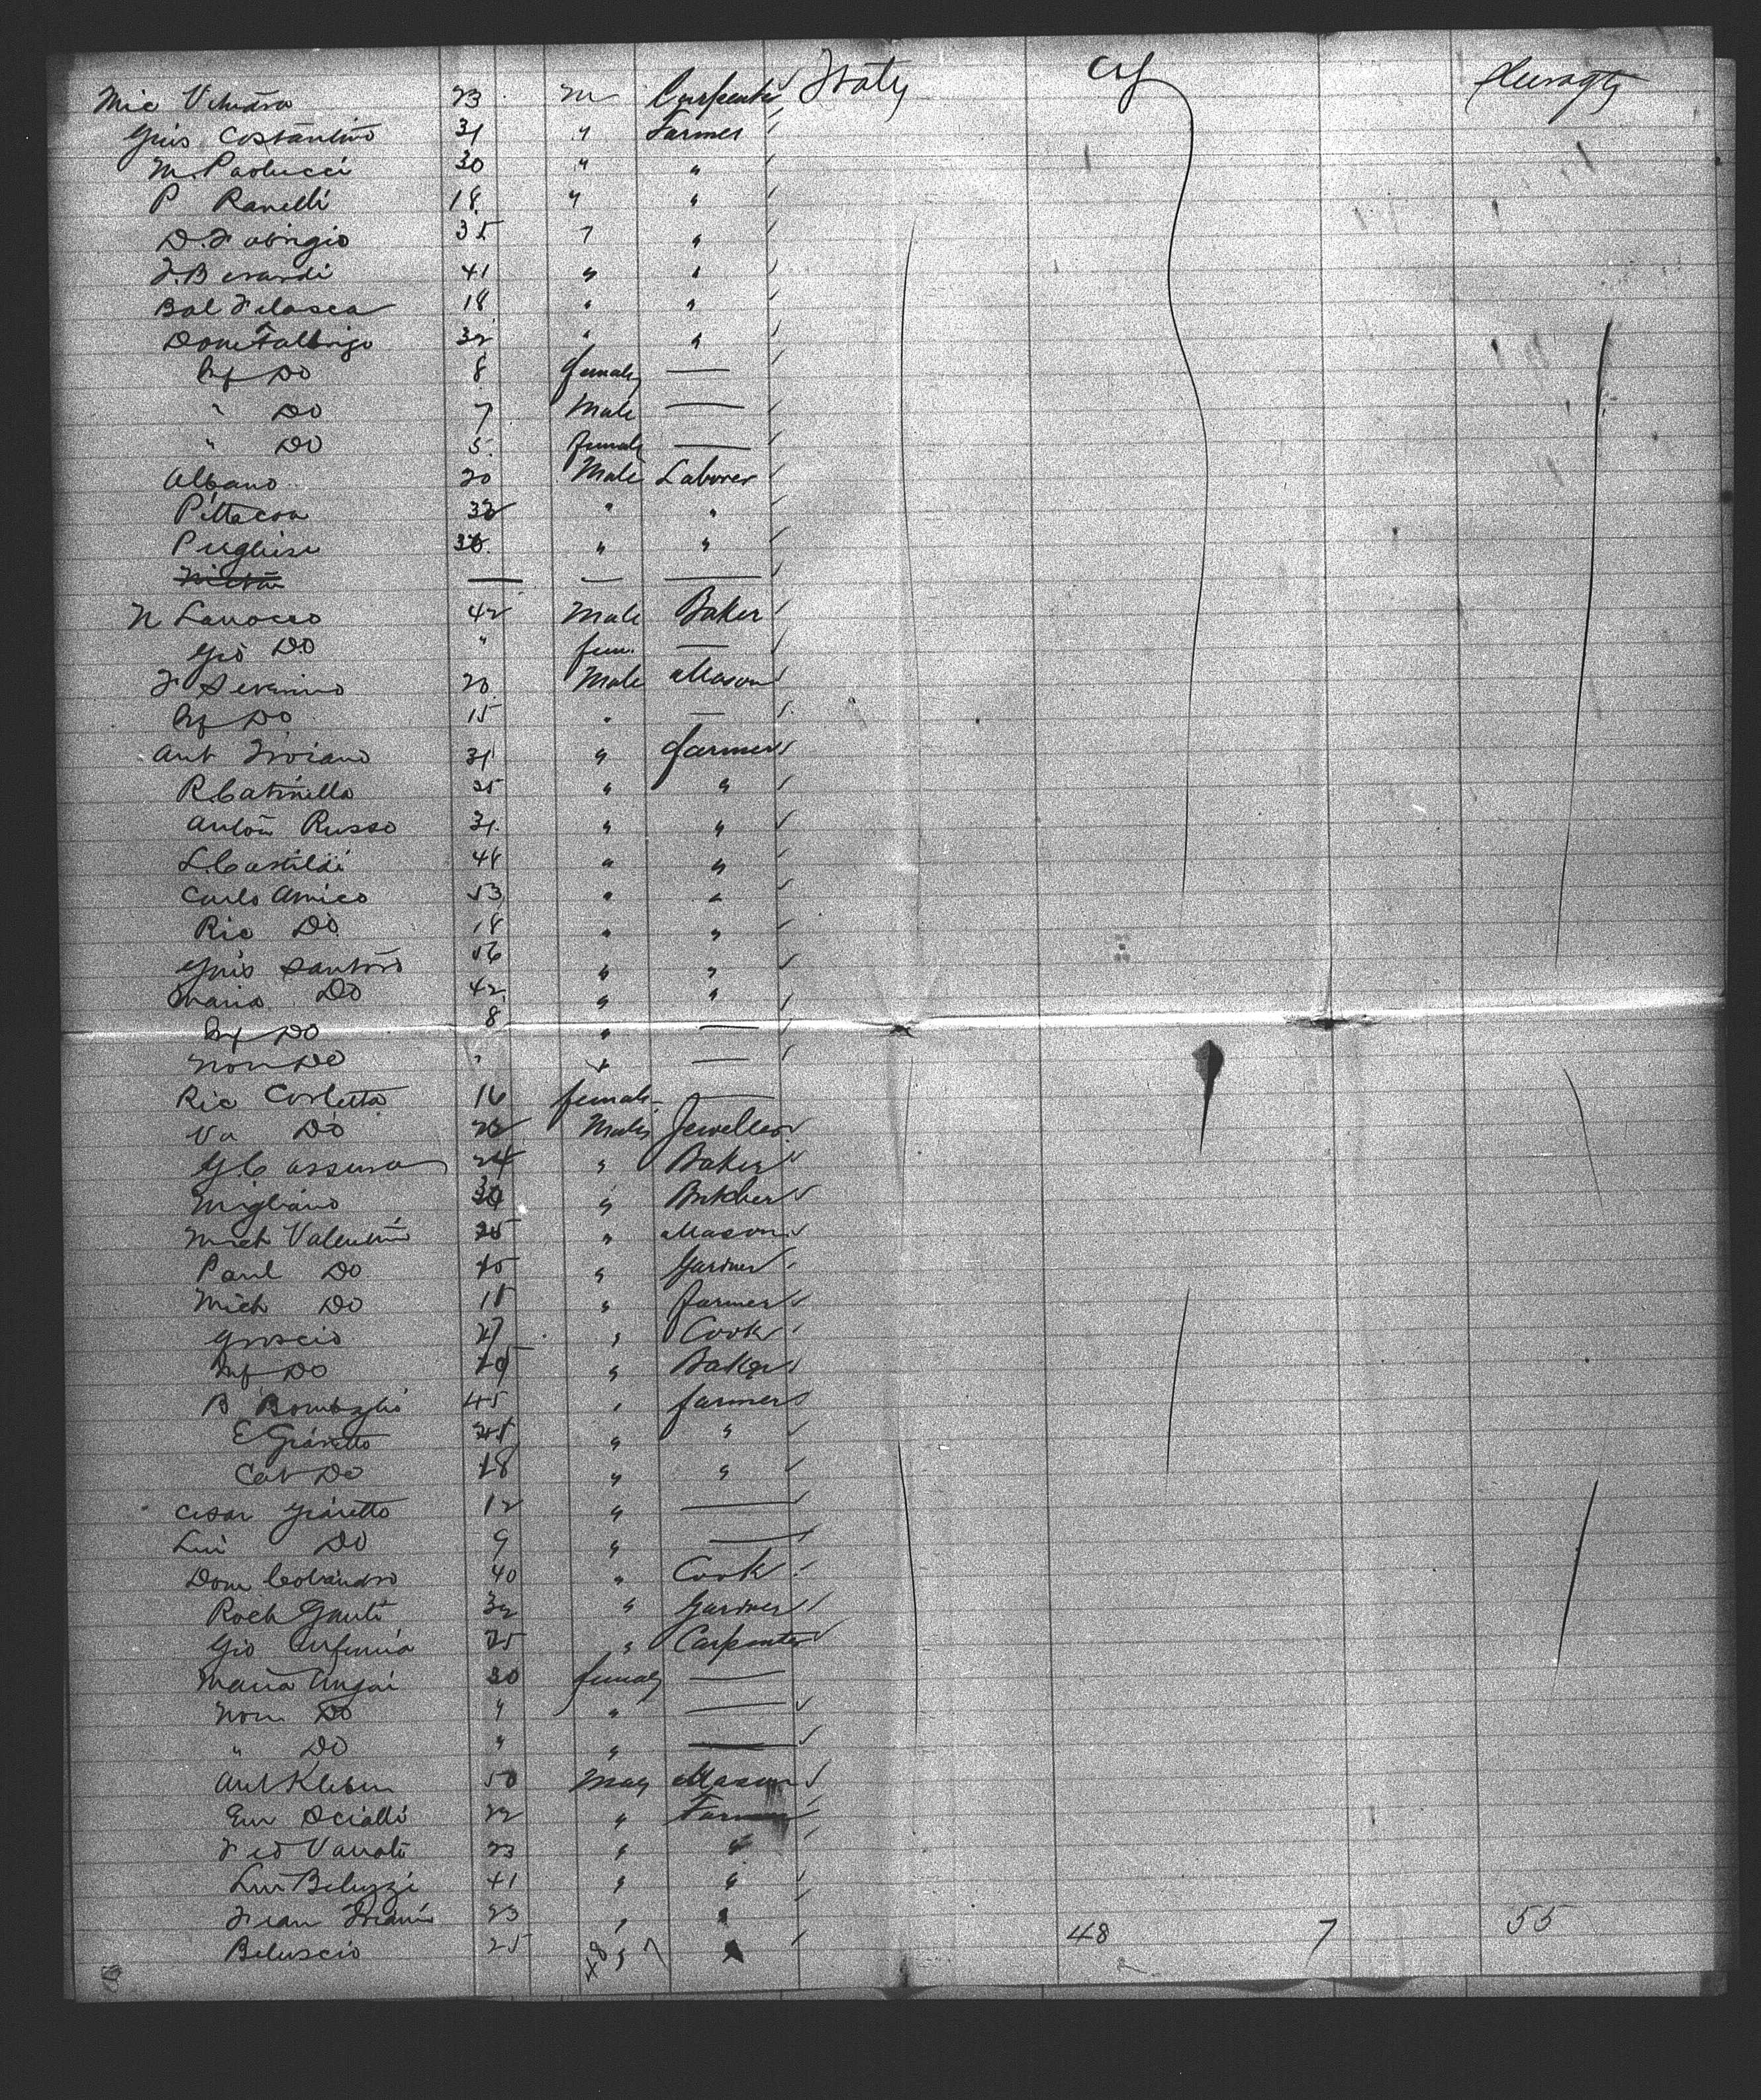 Mic 23 m Carpenter Italy City Steerage
Gius Costantino 31 " Farmer
M. Paolucci 30 " "
P Ranelli 18 " "
D. Fabrigio 35 " "
F. Berardi 41 " "
Bal Filasca 18 " "
Dom Fabbrizo 32 " "
Inf Do 8 female —
" Do 7 Male —
" Do 5 female —
Albano 20 Male Laborer
Pittacoa 32 " "
Pugliese 30 " "
— — —
N Lanocco 42 Male Baker
Gio Do " fem. —
F Severino 20 Male Mason
Inf Do 15 " —
Ant Troiano 31 " farmer
R. Catinella 25 " "
Anton Russo 31 " "
L. Castildi 48 " "
Carlo Amico 53 " "
Ric Do 18 " "
Gius Santoro 56 " "
Maria Do 42 " "
Inf Do 8 " —
Non Do " " —
Ric Corletta 16 female —
Va Do 22 Male Jeweller
G. Cassesa 24 " Baker
Migliano " Butcher
Mich Valentino 25 " Mason
Paul Do 15 " Gardner
Mich Do 18 " farmer
Groscio 27 " Cook
Inf Do " Baker
B Bombaglio 45 " farmer
E Giaretto " "
Cat Do 18 " "
Cesar Giaretto 12 " —
Lui Do 9 " —
Dom Colandro 40 " Cook
Roch Gauti 32 " Gardner
Gio Eufemia 25 " Carpenter
Maria Angai 30 female —
Non Do " " —
" Do " " —
Ant Kleben 50 Male Mason
Em Scialli 22 " Farmer
Fed Vanoli 23 " "
Lui Beluzzi 41 " "
Fran 23 " "
Beluscio 25 " "
48 7
48 7 55